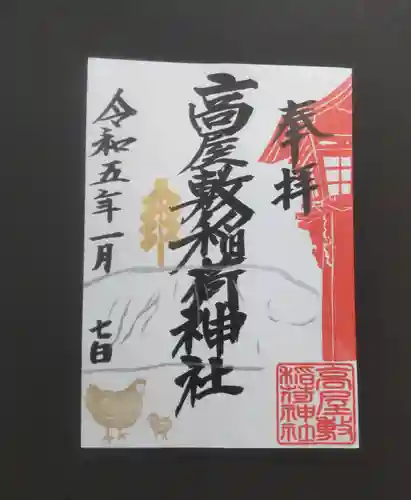 奉拝
高屋敷稲荷神社
令和五年一月
七日
高屋敷
稲荷神社